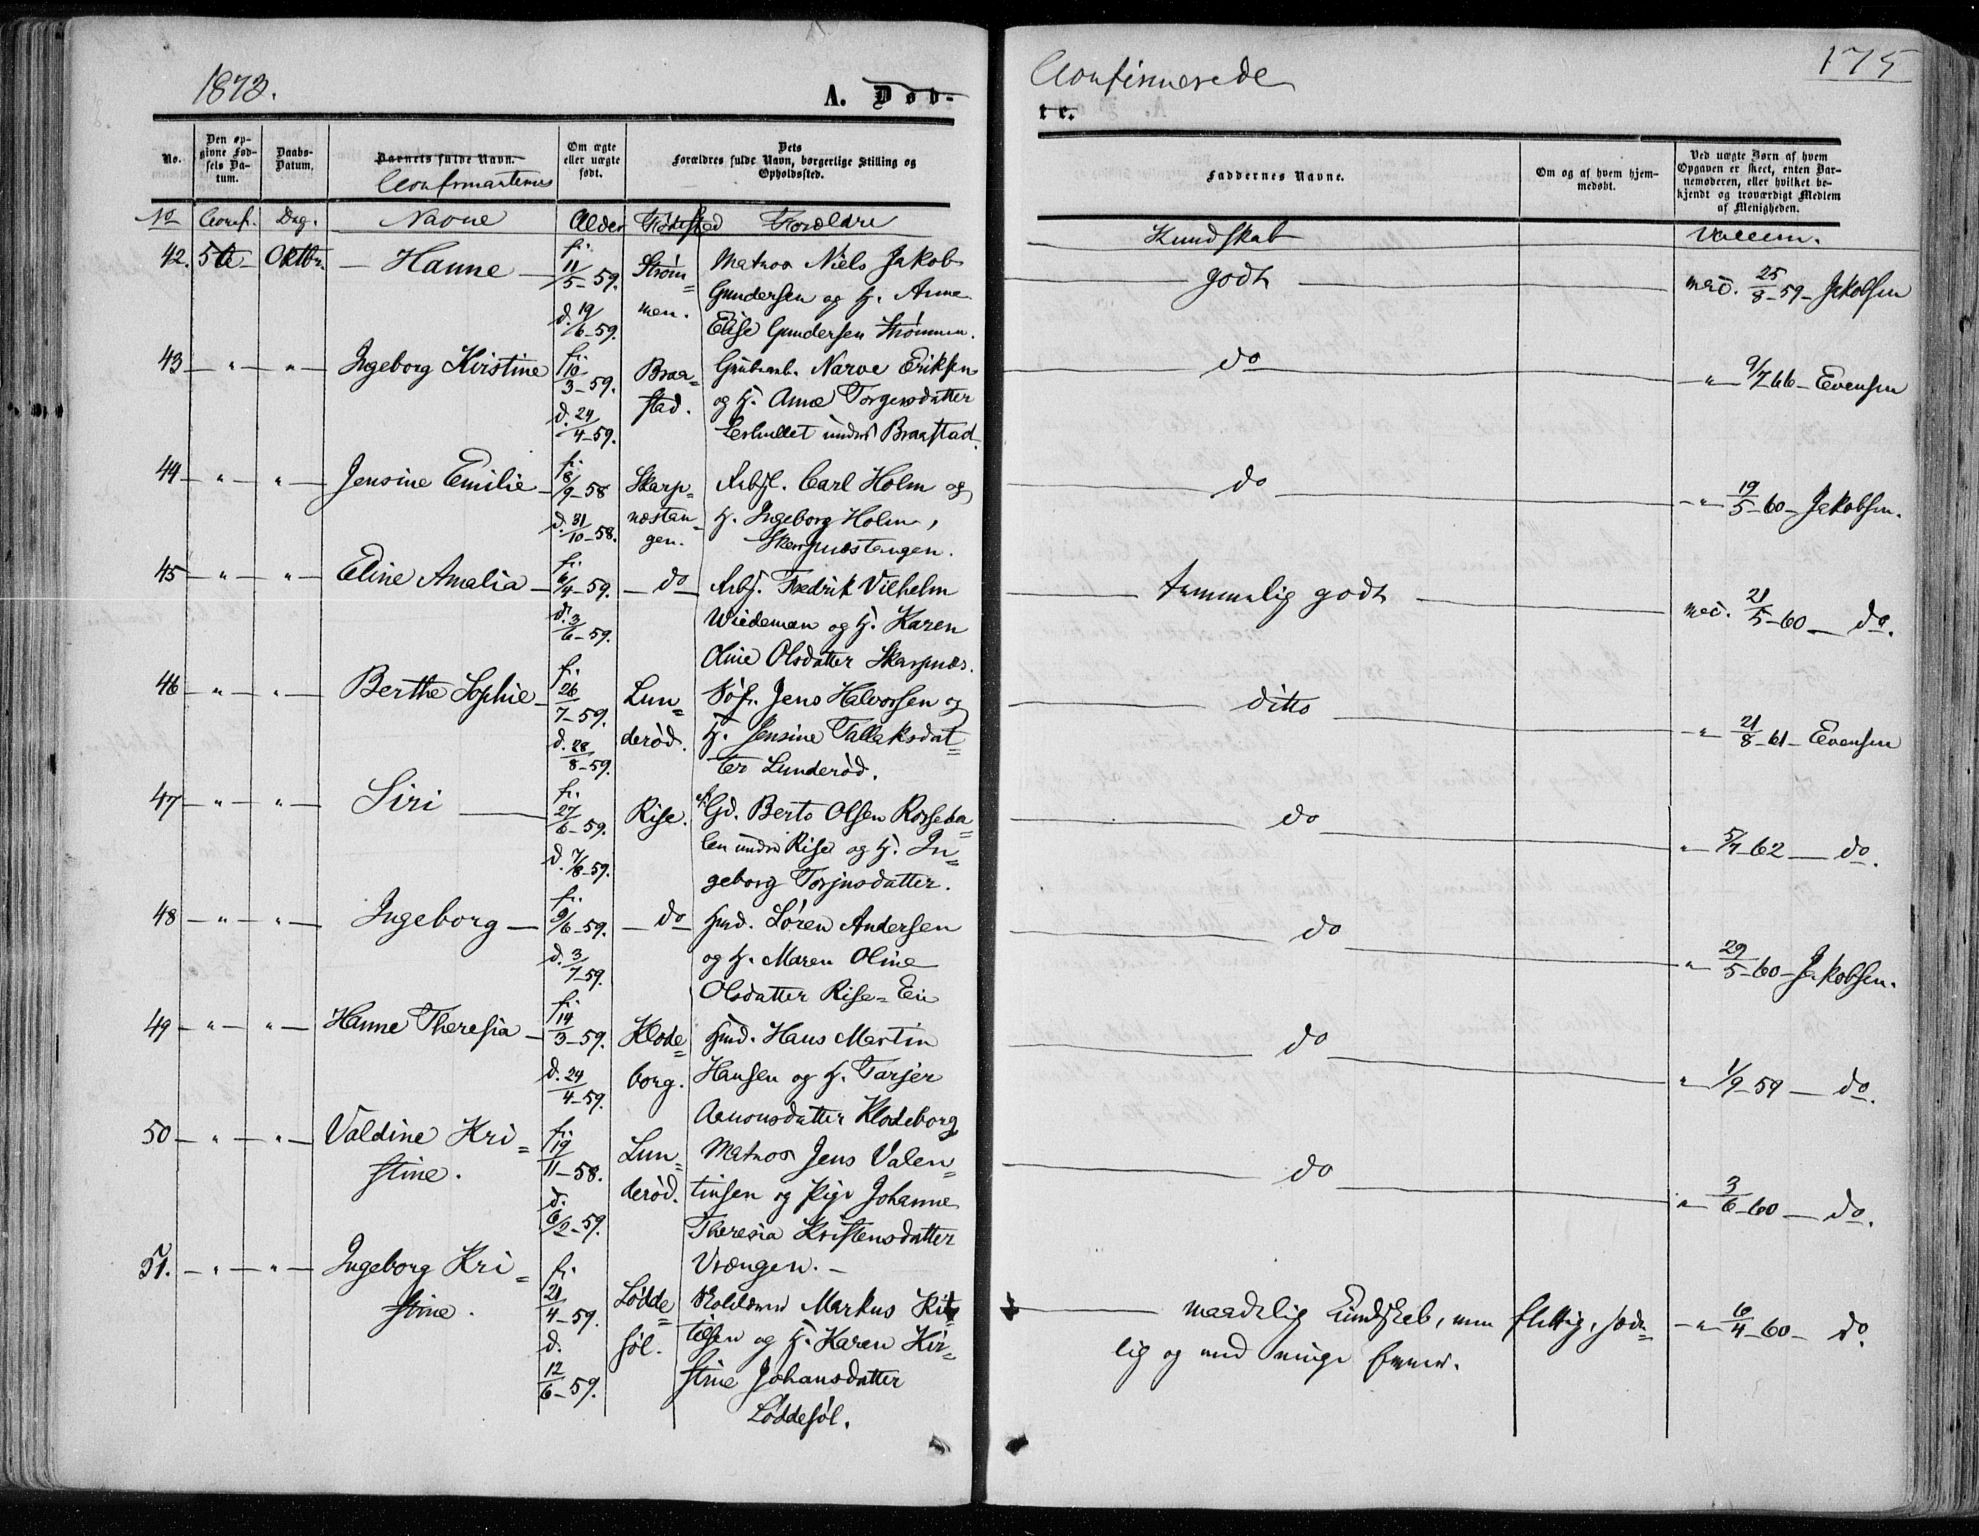 1873.
A. Død-
Confirmerede
te.
175
No.
Den op-
givne Fød-
sels Da-
tum.
Daabs-
Datum.
Barnets fulde Navn.
Confirmanternes
Om ægte
eller uægte
født.
Dets
Forældres fulde Navn, borgerlige Stilling og
Opholdssted.
Faddernes Navne.
Om og af hvem hjem-
medøbt.
Ved uægte Børn af hvem
Opgaven er skeet, enten Bar-
nemoderen, eller hvilket be-
kjendt og troværdigt Medlem
af Menigheden.
No Conf. Dag. Navne Alder Fødested Forældre
Kundskab
Vaccin.
42. 5te Oktbr. Hanne
f. 11/5-59.
d. 19/6-59.
Strøm=
men.
Matros Niels Jakob
Gundersen og H. Anne
Elise Gundersen Strømmen.
godt
vac. 25/8-59 - Jakobsen
43 " " Ingeborg Kirstine
f. 10/3-59.
d. 24/4-59.
Braa=
stad.
Grubearb. Narve Eriksen
og H. Anne Torgersdatter
under Braastad.
do
" 9/7 66 - Evensen
44 " " Jensine Emilie
f. 8/9-58
d. 31/10-58.
Skarp=
næstan=
gen.
Arbj. Carl Holm og
H. Ingeborg Holm,
Skarpnæstangen.
do
" 19/5-60 - Jakobsen.
45 " " Eline Amalia
f. 6/4-59.
d. 3/6-59.
do
Arbj. Fredrik Vilhelm
Wiedeman og H. Karen
Oline Olsdatter Skarpnæs.
temmelig godt
vac. 21/5-60 do.
46 " " Berthe Sophie
f. 26/7-59.
d. 28/8-59.
Lun=
derød.
Søf. Jens Halvorsen og
H. Jensine Tallaksdat=
ter Lunderød.
ditto
" 21/8-61 - Evensen
47 " " Siri
f. 27/6-59.
d. 7/8-59.
Rise.
Gd. Berto Olsen Rosseba=
len under Rise og H. In=
geborg Torjusdatter.
do
" 5/7-62 do.
48 " " Ingeborg
f. 9/6-59.
d. 3/7-59.
do
Hmd. Søren Andersen
og H. Maren Oline
Olsdatter Rise=Eie
do
" 29/5-60 - Jakobsen.
49 " " Hanne Theresia
f. 14/3-59.
d. 24/4-59.
Klode=
borg.
Hmd. Hans Martin
Hansen og H. Tarjer
Aanonsdatter Klodeborg
do
" 1/9-59 do.
50 " " Valdine Kri=
stine.
f. 19/11-58.
d. 6/2-59.
Lun=
derød.
Matros Jens Valen=
tinsen og Pige Johanne
Theresia Kristensdatter
Vrængen.
do
" 3/6-60 do.
51. " " Ingeborg Kri=
stine.
f. 21/4-59.
d. 12/6-59.
Lødde=
søl.
Markus Kit=
tilsen og H. Karen Kir=
stine Johansdatter
Løddesøl.
maadelig Kundskab, men flittig, sæde=
lig og med ringe Evner.
" 6/4-60 - do.